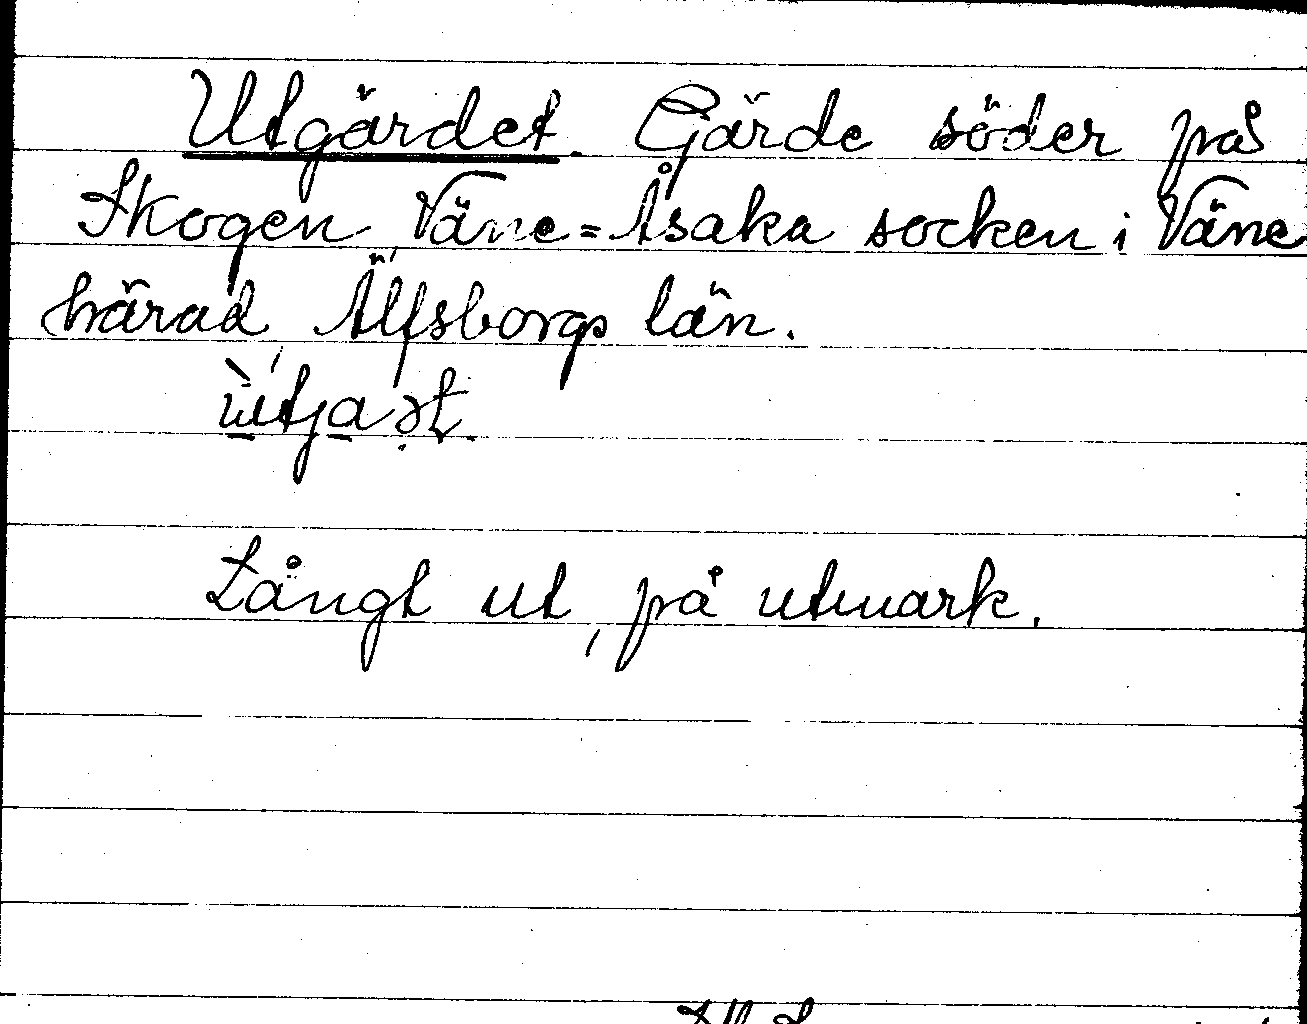 Utgärdet. Gärde söder på
Skogen, Väne=Åsaka socken i Väne
härad, Älfsborgs län.
Långt ut, på utmark.